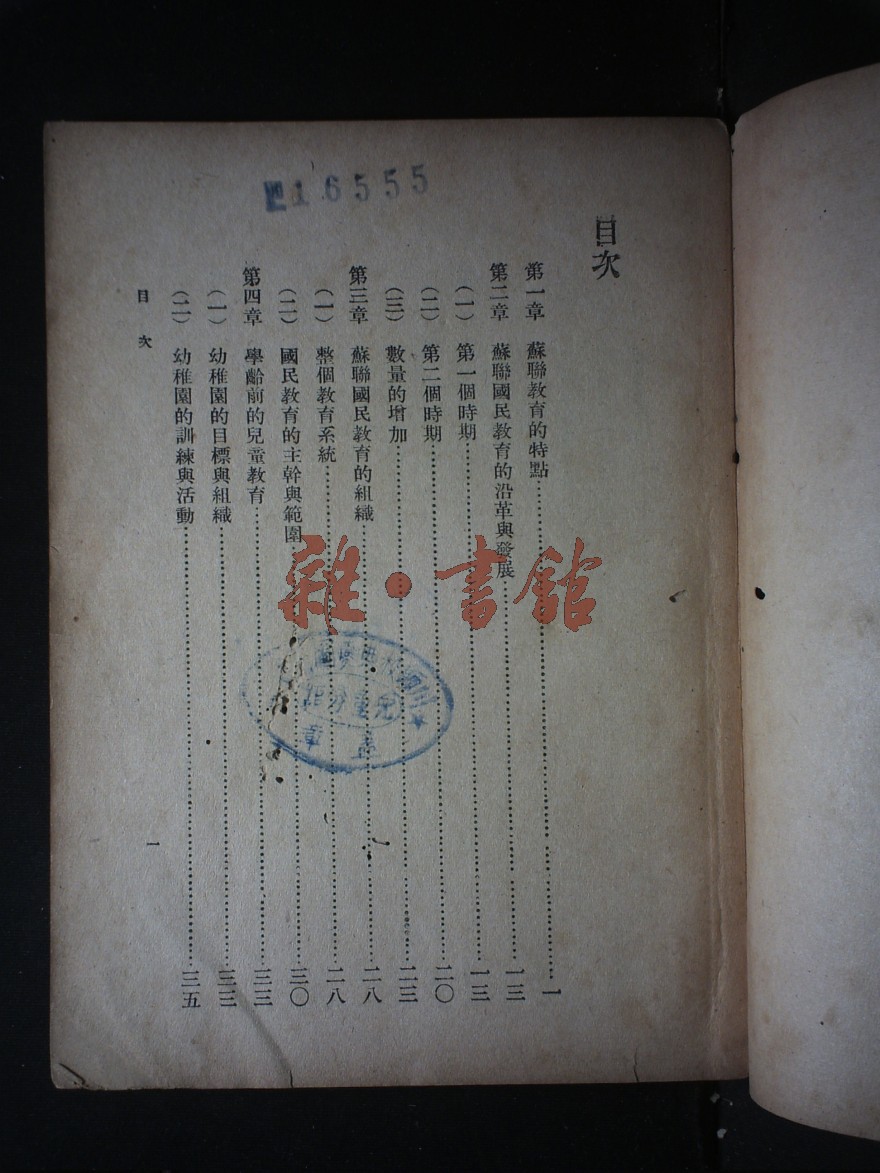 16555
目次
第一章 蘇聯教育的特點……一
第二章 蘇聯國民教育的沿革與發展……一三
（一） 第一個時期……一三
（二） 第二個時期……二〇
（三） 數量的增加……二三
第三章 蘇聯國民教育的組織……二八
（一） 整個教育系統……二八
（二） 國民教育的主幹與範圍……三〇
第四章 學齡前的兒童教育……三三
（一） 幼稚園的目標與組織……三三
（二） 幼稚園的訓練與活動……三五
目次
一
雜·書館
兒童分館